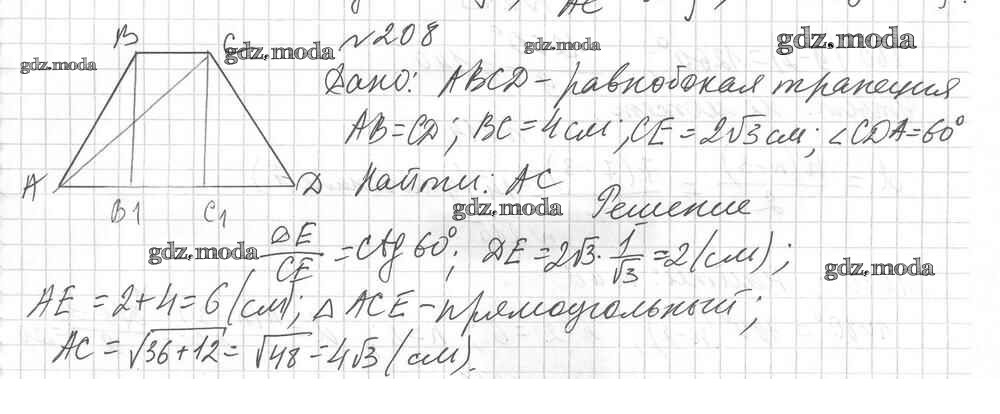 B C gdz.moda №208 gdz.moda gdz.moda
gdz.moda
Дано: ABCD - равнобокая трапеция
AB=CD; BC=4см; CE=2√3см; ∠CDA=60°
A D Найти: AC
B1 C1 gdz.moda Решение
gdz.moda DE/CE = ctg 60°; DE = 2√3 · 1/√3 = 2 (см); gdz.moda
AE = 2+4 = 6 (см); △ ACE - прямоугольный;
AC = √36+12 = √48 = 4√3 (см).